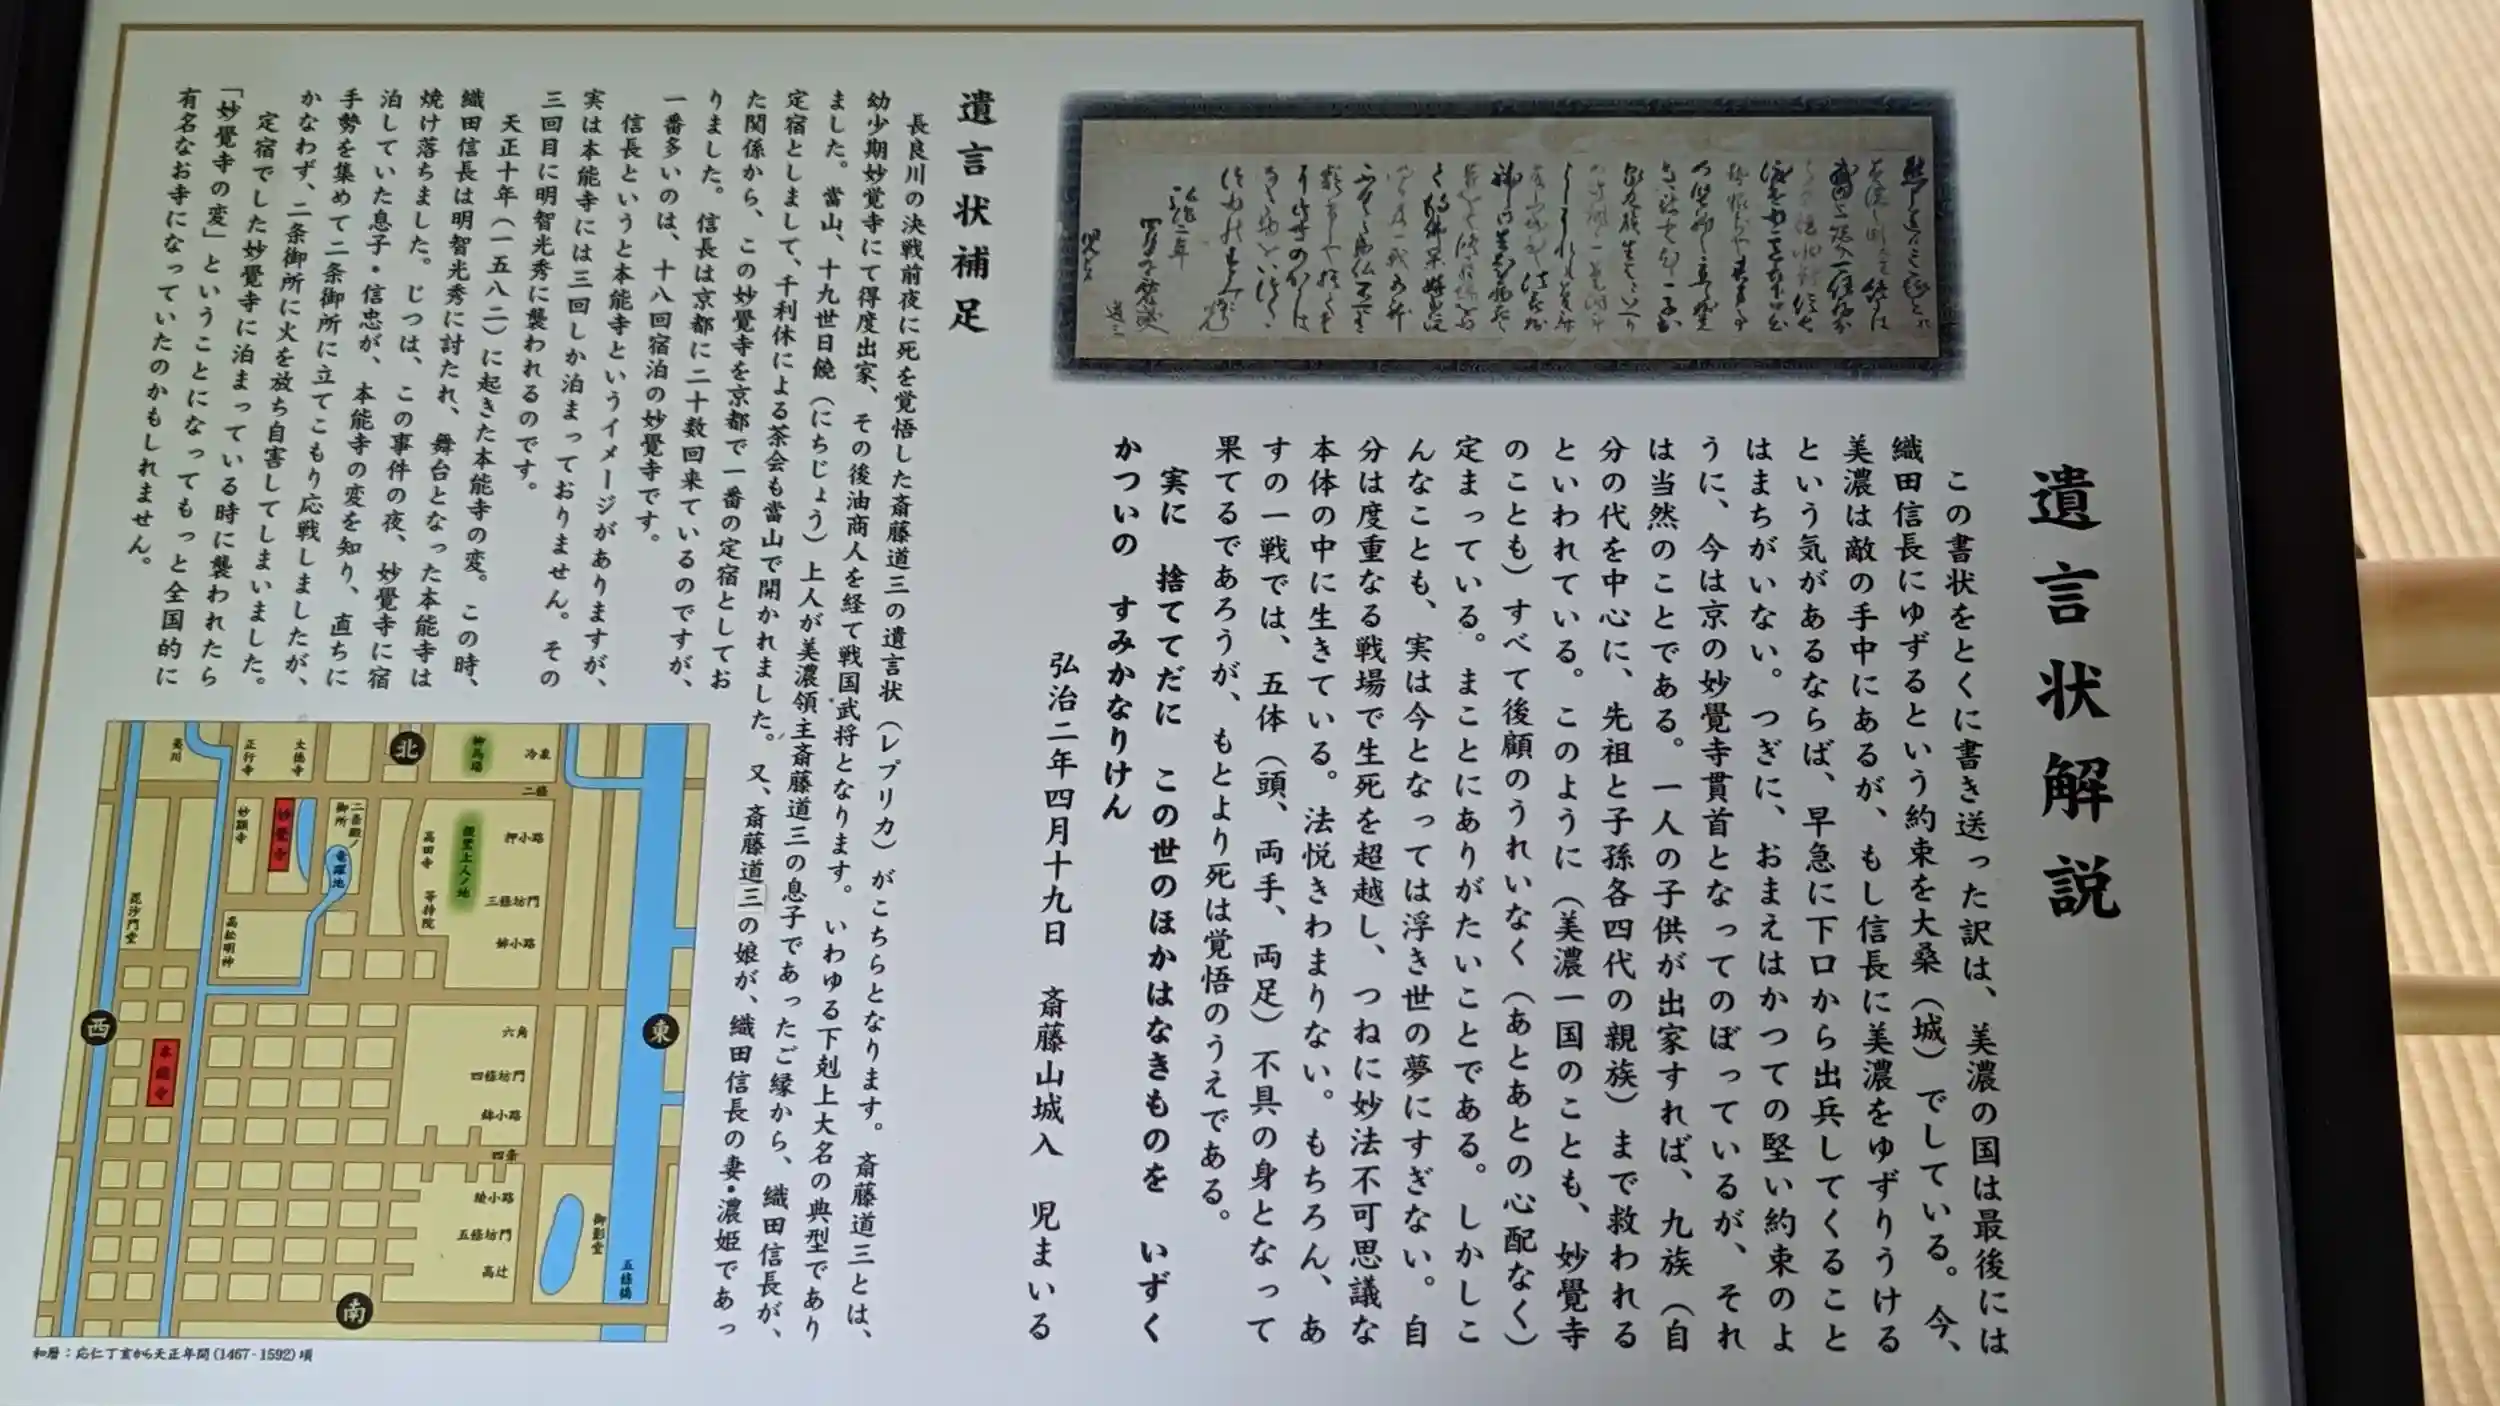 遺言状解説
この書状をとくに書き送った訳は、美濃の国は最後には
織田信長にゆずるという約束を大桑（城）でしている。今、
美濃は敵の手中にあるが、もし信長に美濃をゆずりうける
という気があるならば、早急に下口から出兵してくること
はまちがいない。つぎに、おまえはかつての堅い約束のよ
うに、今は京の妙覺寺貫首となってのぼっているが、それ
は当然のことである。一人の子供が出家すれば、九族（自
分の代を中心に、先祖と子孫各四代の親族）まで救われる
といわれている。このように（美濃一国のことも、妙覺寺
のことも）すべて後顧のうれいなく（あとあとの心配なく）
定まっている。まことにありがたいことである。しかしこ
んなことも、実は今となっては浮き世の夢にすぎない。自
分は度重なる戦場で生死を超越し、つねに妙法不可思議な
本体の中に生きている。法悦きわまりない。もちろん、あ
すの一戦では、五体（頭、両手、両足）不具の身となって
果てるであろうが、もとより死は覚悟のうえである。
実に　捨ててだに　この世のほかはなきものを　いずく
かついの　すみかなりけん
弘治二年四月十九日　斎藤山城入　児まいる
遺言状補足
長良川の決戦前夜に死を覚悟した斎藤道三の遺言状（レプリカ）がこちらとなります。斎藤道三とは、
幼少期妙覚寺にて得度出家、その後油商人を経て戦国武将となります。いわゆる下剋上大名の典型であり
ました。當山、十九世日饒（にちじょう）上人が美濃領主斎藤道三の息子であったご縁から、織田信長が、
定宿としまして、千利休による茶会も當山で開かれました。又、斎藤道三の娘が、織田信長の妻・濃姫であっ
た関係から、この妙覺寺を京都で一番の定宿としてお
りました。信長は京都に二十数回来ているのですが、
一番多いのは、十八回宿泊の妙覺寺です。
信長というと本能寺というイメージがありますが、
実は本能寺には三回しか泊まっておりません。その
三回目に明智光秀に襲われるのです。
天正十年（一五八二）に起きた本能寺の変。この時、
織田信長は明智光秀に討たれ、舞台となった本能寺は
焼け落ちました。じつは、この事件の夜、妙覺寺に宿
泊していた息子・信忠が、本能寺の変を知り、直ちに
手勢を集めて二条御所に立てこもり応戦しましたが、
かなわず、二条御所に火を放ち自害してしまいました。
定宿でした妙覺寺に泊まっている時に襲われたら
「妙覺寺の変」ということになってもっと全国的に
有名なお寺になっていたのかもしれません。
北
冷泉
大徳寺
正行寺
二條
二条殿ノ
御所
妙覺寺
妙顕寺
押小路
高田寺
竜躍池
三條坊門
等持院
毘沙門堂
高松明神
西
東
六角
本能寺
四條坊門
四条
綾小路
五條坊門
御影堂
高辻
五條橋
南
和暦：応仁丁亥から天正年間(1467-1592)頃